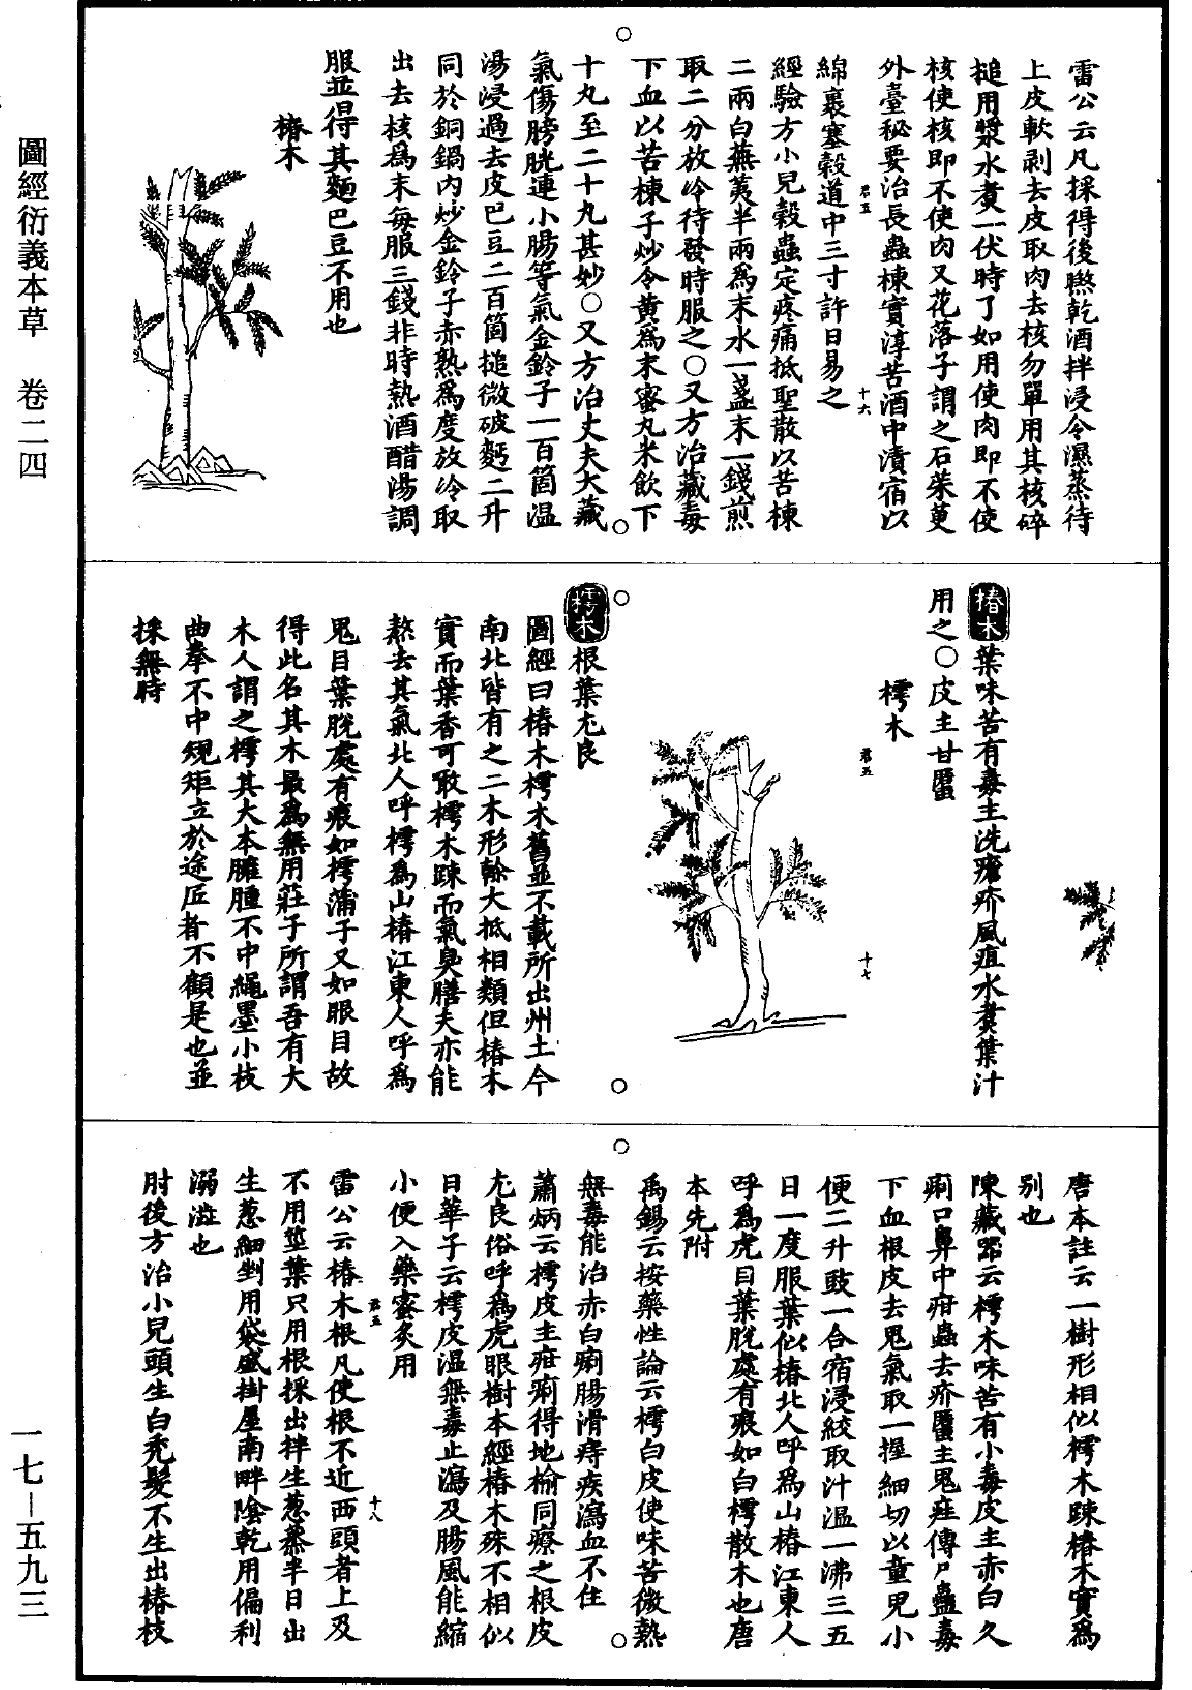 圖經衍義本草　卷二四
雷公云凡採得後㬠乾酒拌浸令濕蒸待
上皮軟剥去皮取肉去核勿單用其核碎
槌用漿水煮一伏時了如用使肉即不使
核使核即不使肉又花落子謂之石茱萸
外臺秘要治長蟲楝實淳苦酒中漬宿以
君五　十六
綿裹塞穀道中三寸許日易之
經驗方小兒穀蟲定疼痛抵聖散以苦楝
二兩白蕪荑半兩為末水一盞末一錢煎
取二分放冷待發時服之○又方治藏毒
下血以苦楝子炒令黃為末蜜丸米飲下
十丸至二十丸甚妙○又方治丈夫大藏
氣傷膀胱連小腸等氣金鈴子一百箇温
湯浸過去皮巴豆二百箇搥微破麪二升
同於銅鍋內炒金鈴子赤熟為度放冷取
出去核為末每服三錢非時熱酒醋湯調
服並得其麵巴豆不用也
椿木
椿木葉味苦有毒主洗瘡疥風疽水煮葉汁
用之○皮主甘䘌
君五　十七
樗木
樗木根葉尤良
圖經曰椿木樗木舊並不載所出州土今
南北皆有之二木形榦大抵相類但椿木
實而葉香可敢樗木踈而氣臭膳夫亦能
熬去其氣北人呼樗為山椿江東人呼為
鬼目葉脫處有痕如樗蒲子又如眼目故
得此名其木最為無用莊子所謂吾有大
木人謂之樗其大本臃腫不中繩墨小枝
曲拳不中規矩立於途匠者不顧是也並
採無時
唐本註云二樹形相似樗木踈椿木實為
別也
陳藏器云樗木味苦有小毒皮主赤白久
痢口鼻中疳蟲去疥䘌主鬼疰傳尸蠱毒
下血根皮去鬼氣取一握細切以童兒小
便二升豉一合宿浸絞取汁温一沸三五
日一度服葉似椿北人呼為山椿江東人
呼為虎目葉脫處有痕如白樗散木也唐
本先附
禹錫云按藥性論云樗白皮使味苦微熱
無毒能治赤白痢腸滑痔疾瀉血不住
蕭炳云樗皮主疳痢得地榆同療之根皮
尤良俗呼為虎眼樹本經椿木殊不相似
日華子云樗皮温無毒止瀉及腸風能縮
小便入藥蜜炙用
君五　十八
雷公云椿木根凡使根不近西頭者上及
不用莖葉只用根採出拌生葱蒸半日出
生葱細剉用袋盛掛屋南畔陰乾用偏利
溺澁也
肘後方治小兒頭生白秃髮不生出椿枝
一七—五九三